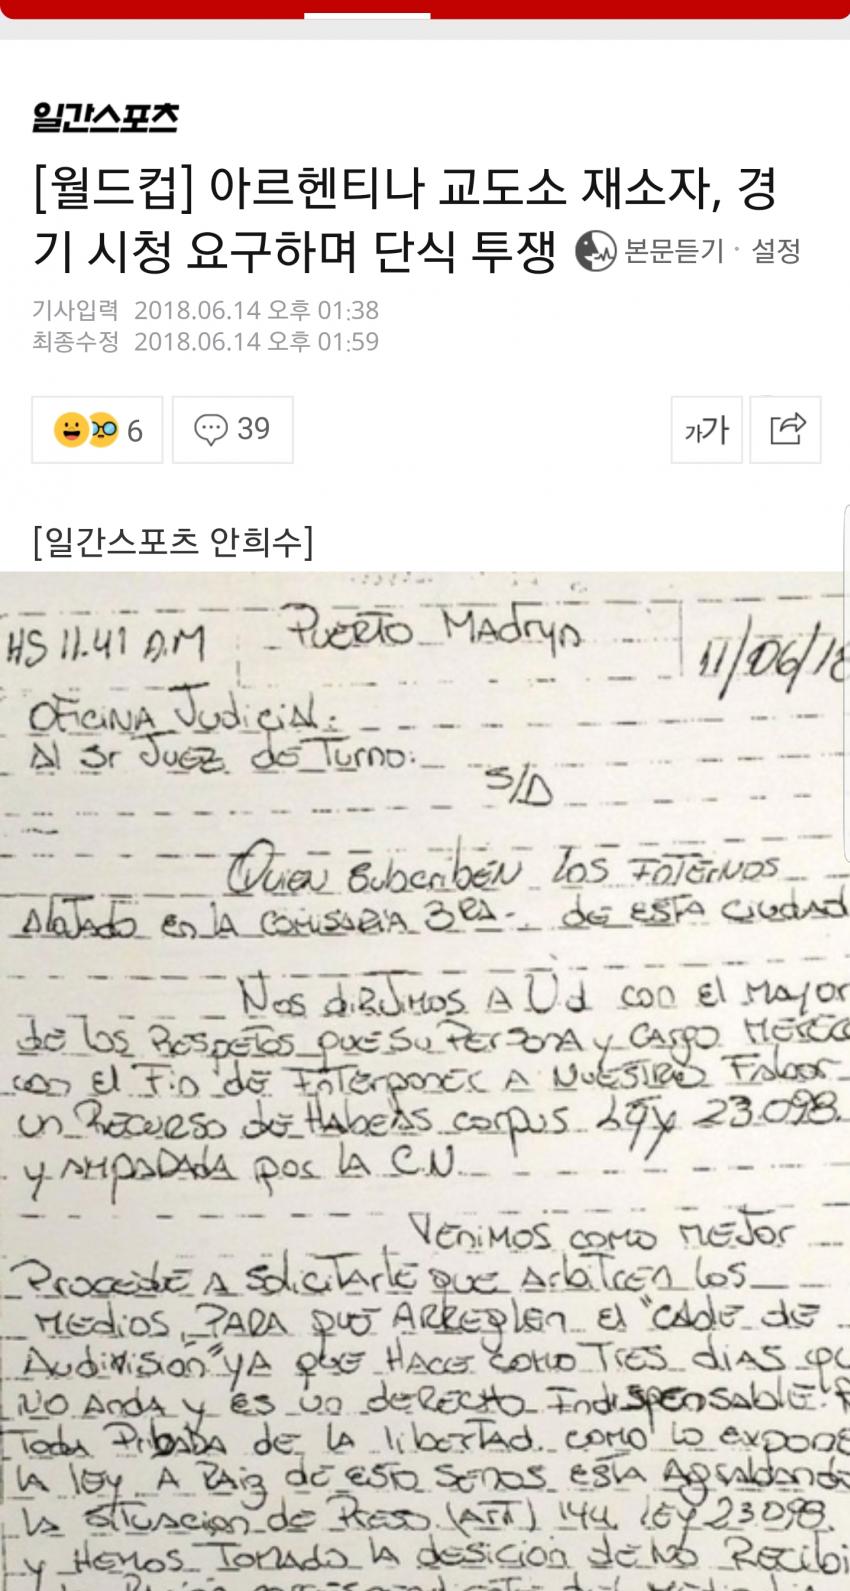 일간스포츠
[월드컵] 아르헨티나 교도소 재소자, 경
기 시청 요구하며 단식 투쟁 본문듣기 · 설정
기사입력 2018.06.14 오후 01:38
최종수정 2018.06.14 오후 01:59
6 39 가가
[일간스포츠 안희수]
HS 11.41 A.M Puerto Madryn 11/06/18
Oficina Judicial:
Al Sr Juez de Turno:
S/D
Quien Subscriben los Internos
Alojado en la Comisaria 3ra. de esta Ciudad
Nos dirijimos A Ud con el Mayor
de los Respetos que su Persona y Cargo
con el Fin de Interponer A Nuestro Fabor
un Recurso de Habeas corpus Ley 23.098.
y Amparada por la C.N.
Venimos como mejor
Procede A Solicitarle que Arbitren los
Medios, Para que Arreglen el "Cable de
Audivisión" ya que Hace como Tres dias
No Anda y es un derecho Indispensable.
Toda Pribada de la libertad. como lo expone
la ley A Raiz de esto Senos esta
la situacion de Preso (Art) 144. ley 23098.
y Hemos Tomado la desicion de No